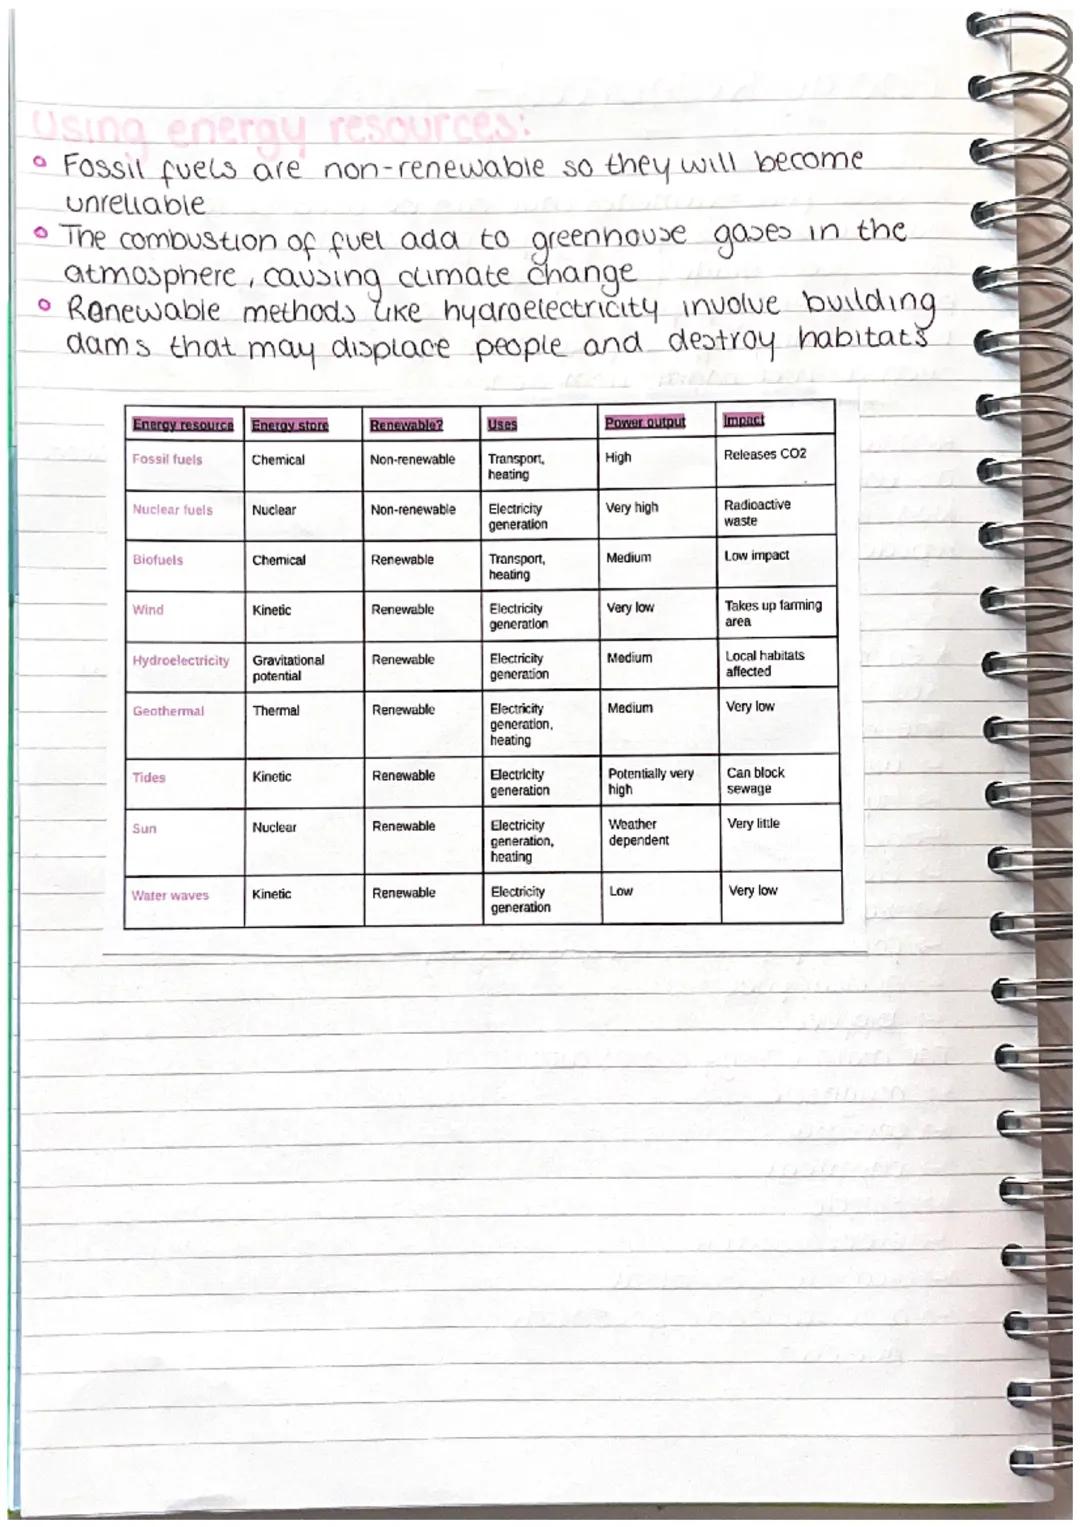 Using energy resources:
Fossil fuels are non-renewable so they will become
unreliable
The combustion of fuel add to greenhouse gases in the
atmosphere, causing climate change
Renewable methods like hydroelectricity involve building
dams that may displace people and destroy habitats
Energy resource Energy store Renewable? Uses Power output Impact
Fossil fuels Chemical Non-renewable Transport, High Releases CO2
heating
Nuclear fuels Nuclear Non-renewable Electricity Very high Radioactive
generation waste
Biofuels Chemical Renewable Transport, Medium Low impact
heating
Wind Kinetic Renewable Electricity Very low Takes up farming
generation area
Hydroelectricity Gravitational Renewable Electricity Medium Local habitats
potential generation affected
Geothermal Thermal Renewable Electricity Medium Very low
generation,
heating
Tides Kinetic Renewable Electricity Potentially very Can block
generation high sewage
Sun Nuclear Renewable Electricity Weather Very little
generation, dependent
heating
Water waves Kinetic Renewable Electricity Low Very low
generation